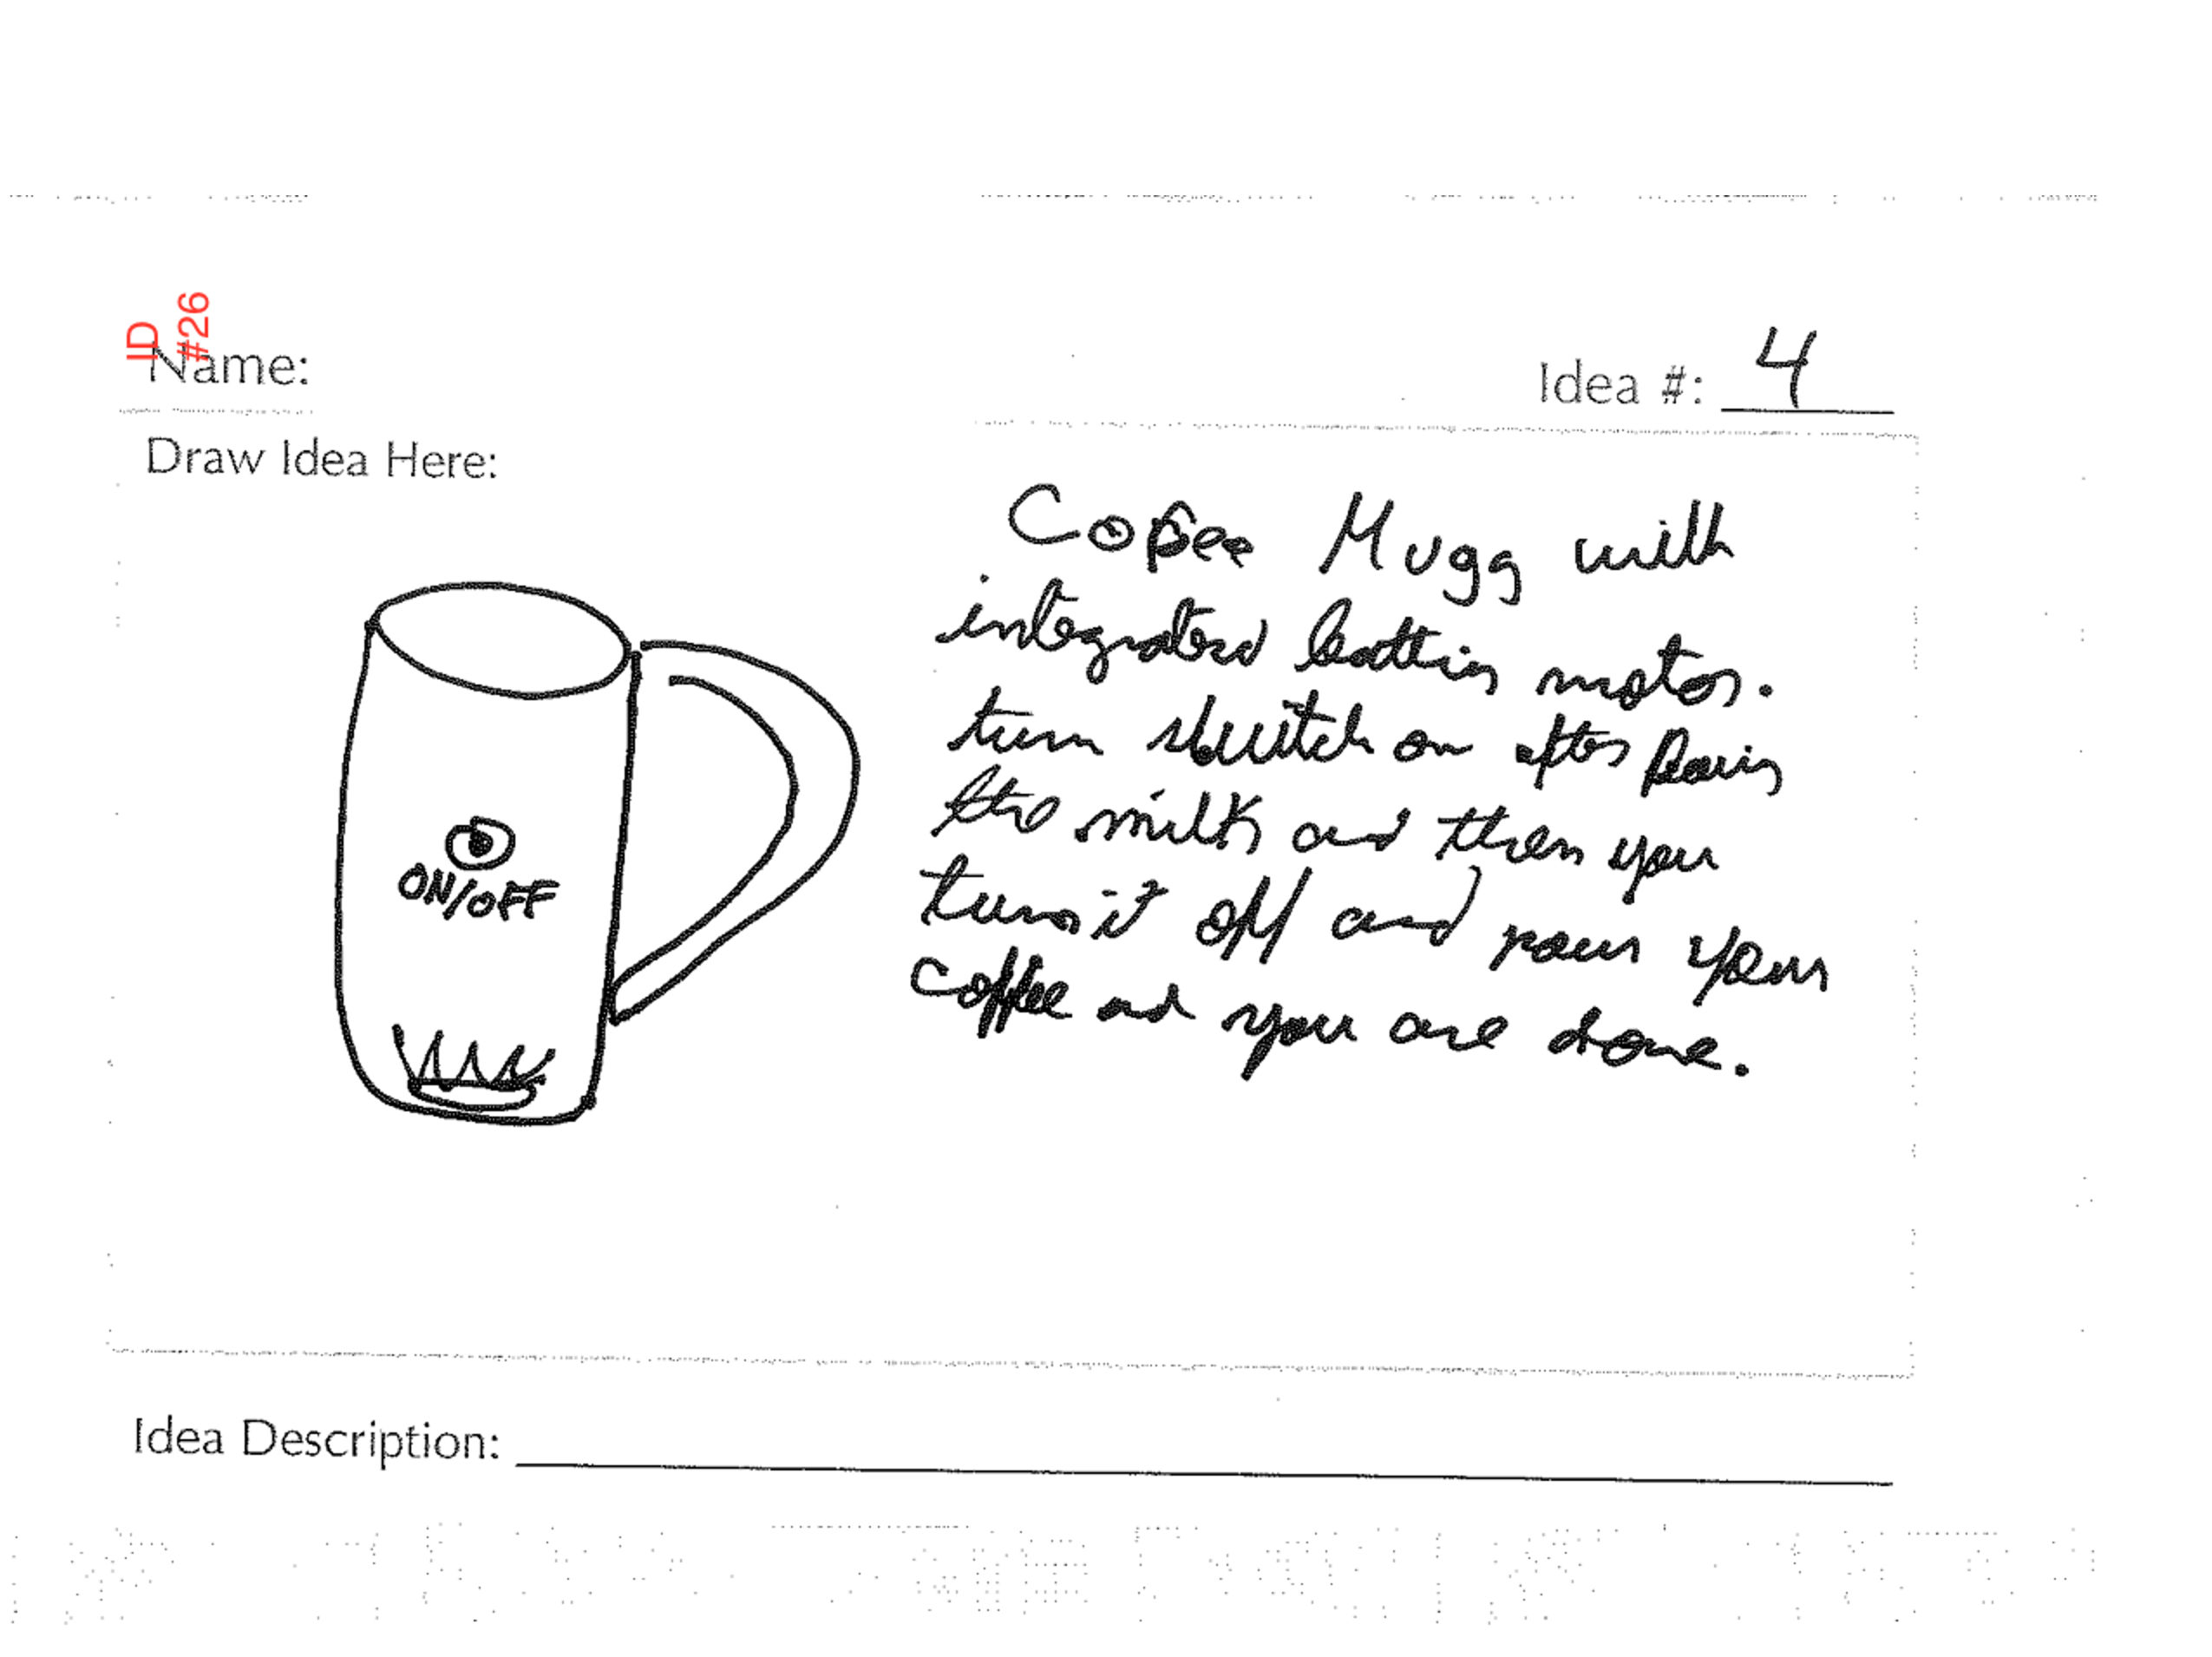 ID
#26
Name:
Idea #: 4
Draw Idea Here:
Coffee Mugg with
integrated motor.
turn switch on after
the milk and then you
turn it off and pour your
coffee and you are done.
ON/OFF
Idea Description: